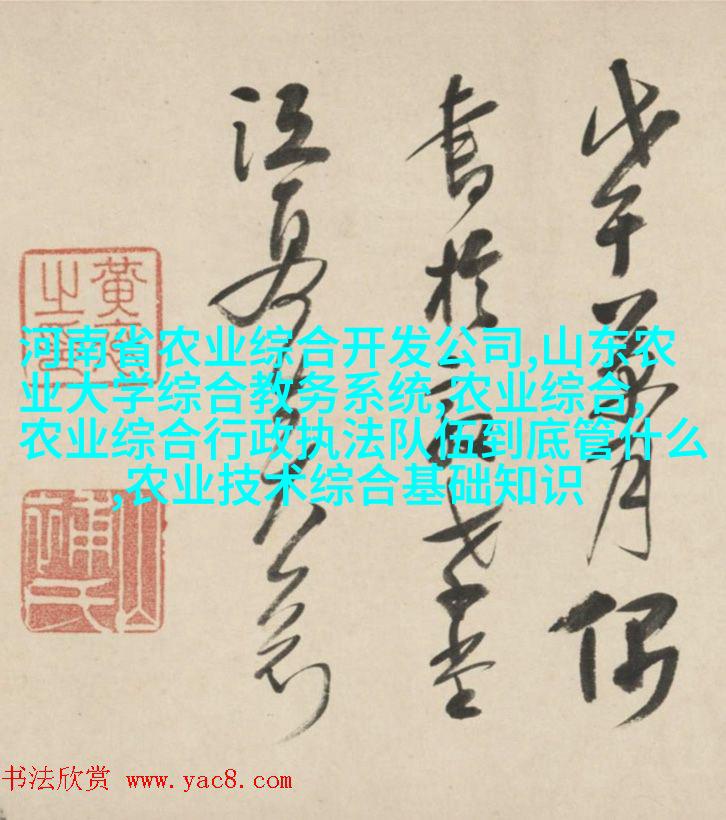 戊午月偶
書於堂
江夏
黃之
河南省农业综合开发公司,山东农
业大学综合教务系统,农业综合,
农业综合行政执法队伍到底管什么
,农业技术综合基础知识
书法欣赏 www.yac8.com